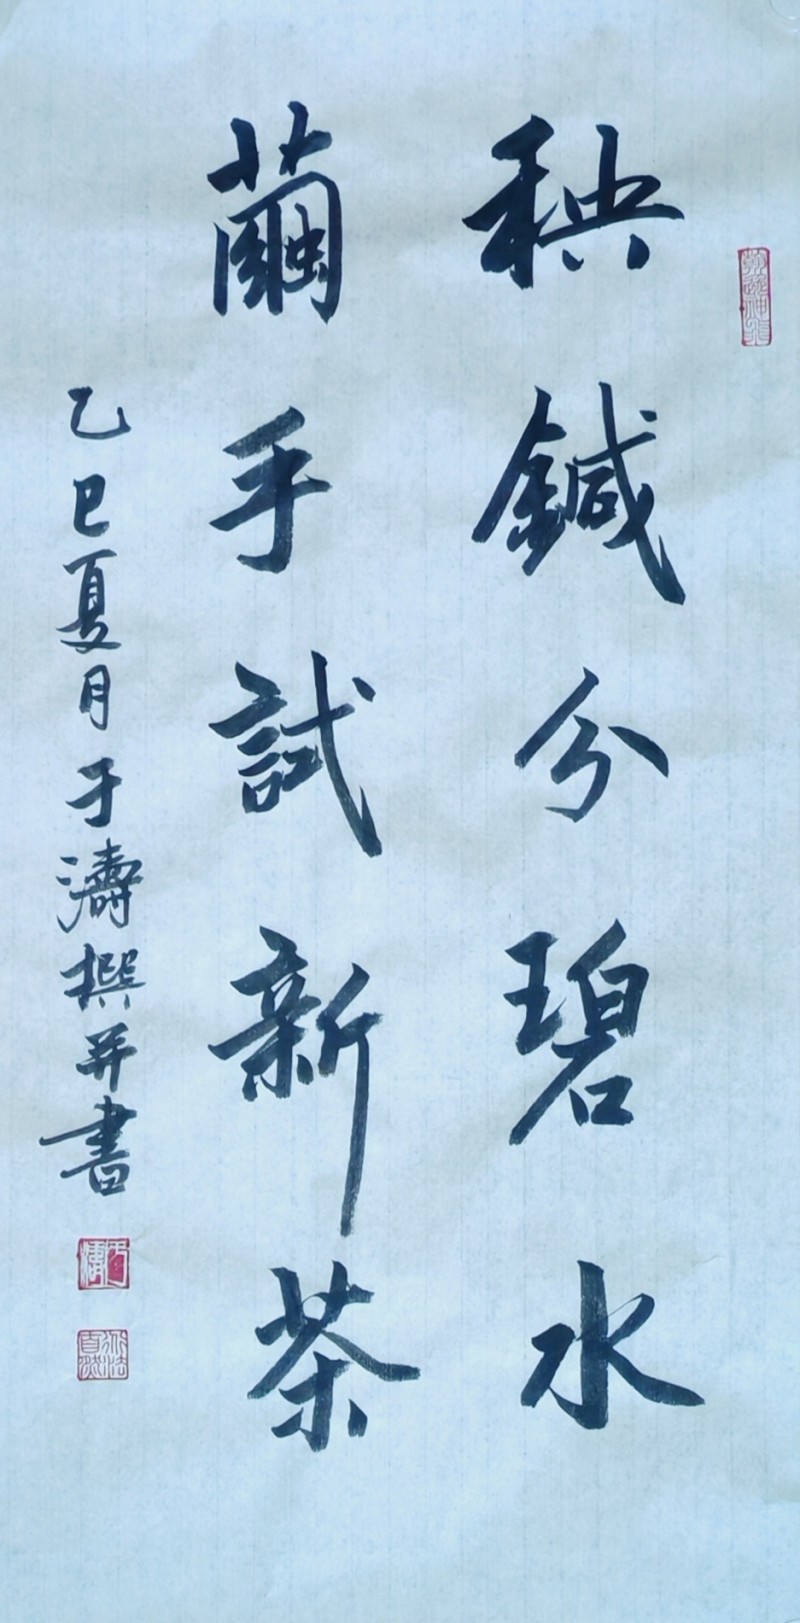 秧鍼分碧水
繭手試新茶
乙巳夏月于濤撰并書